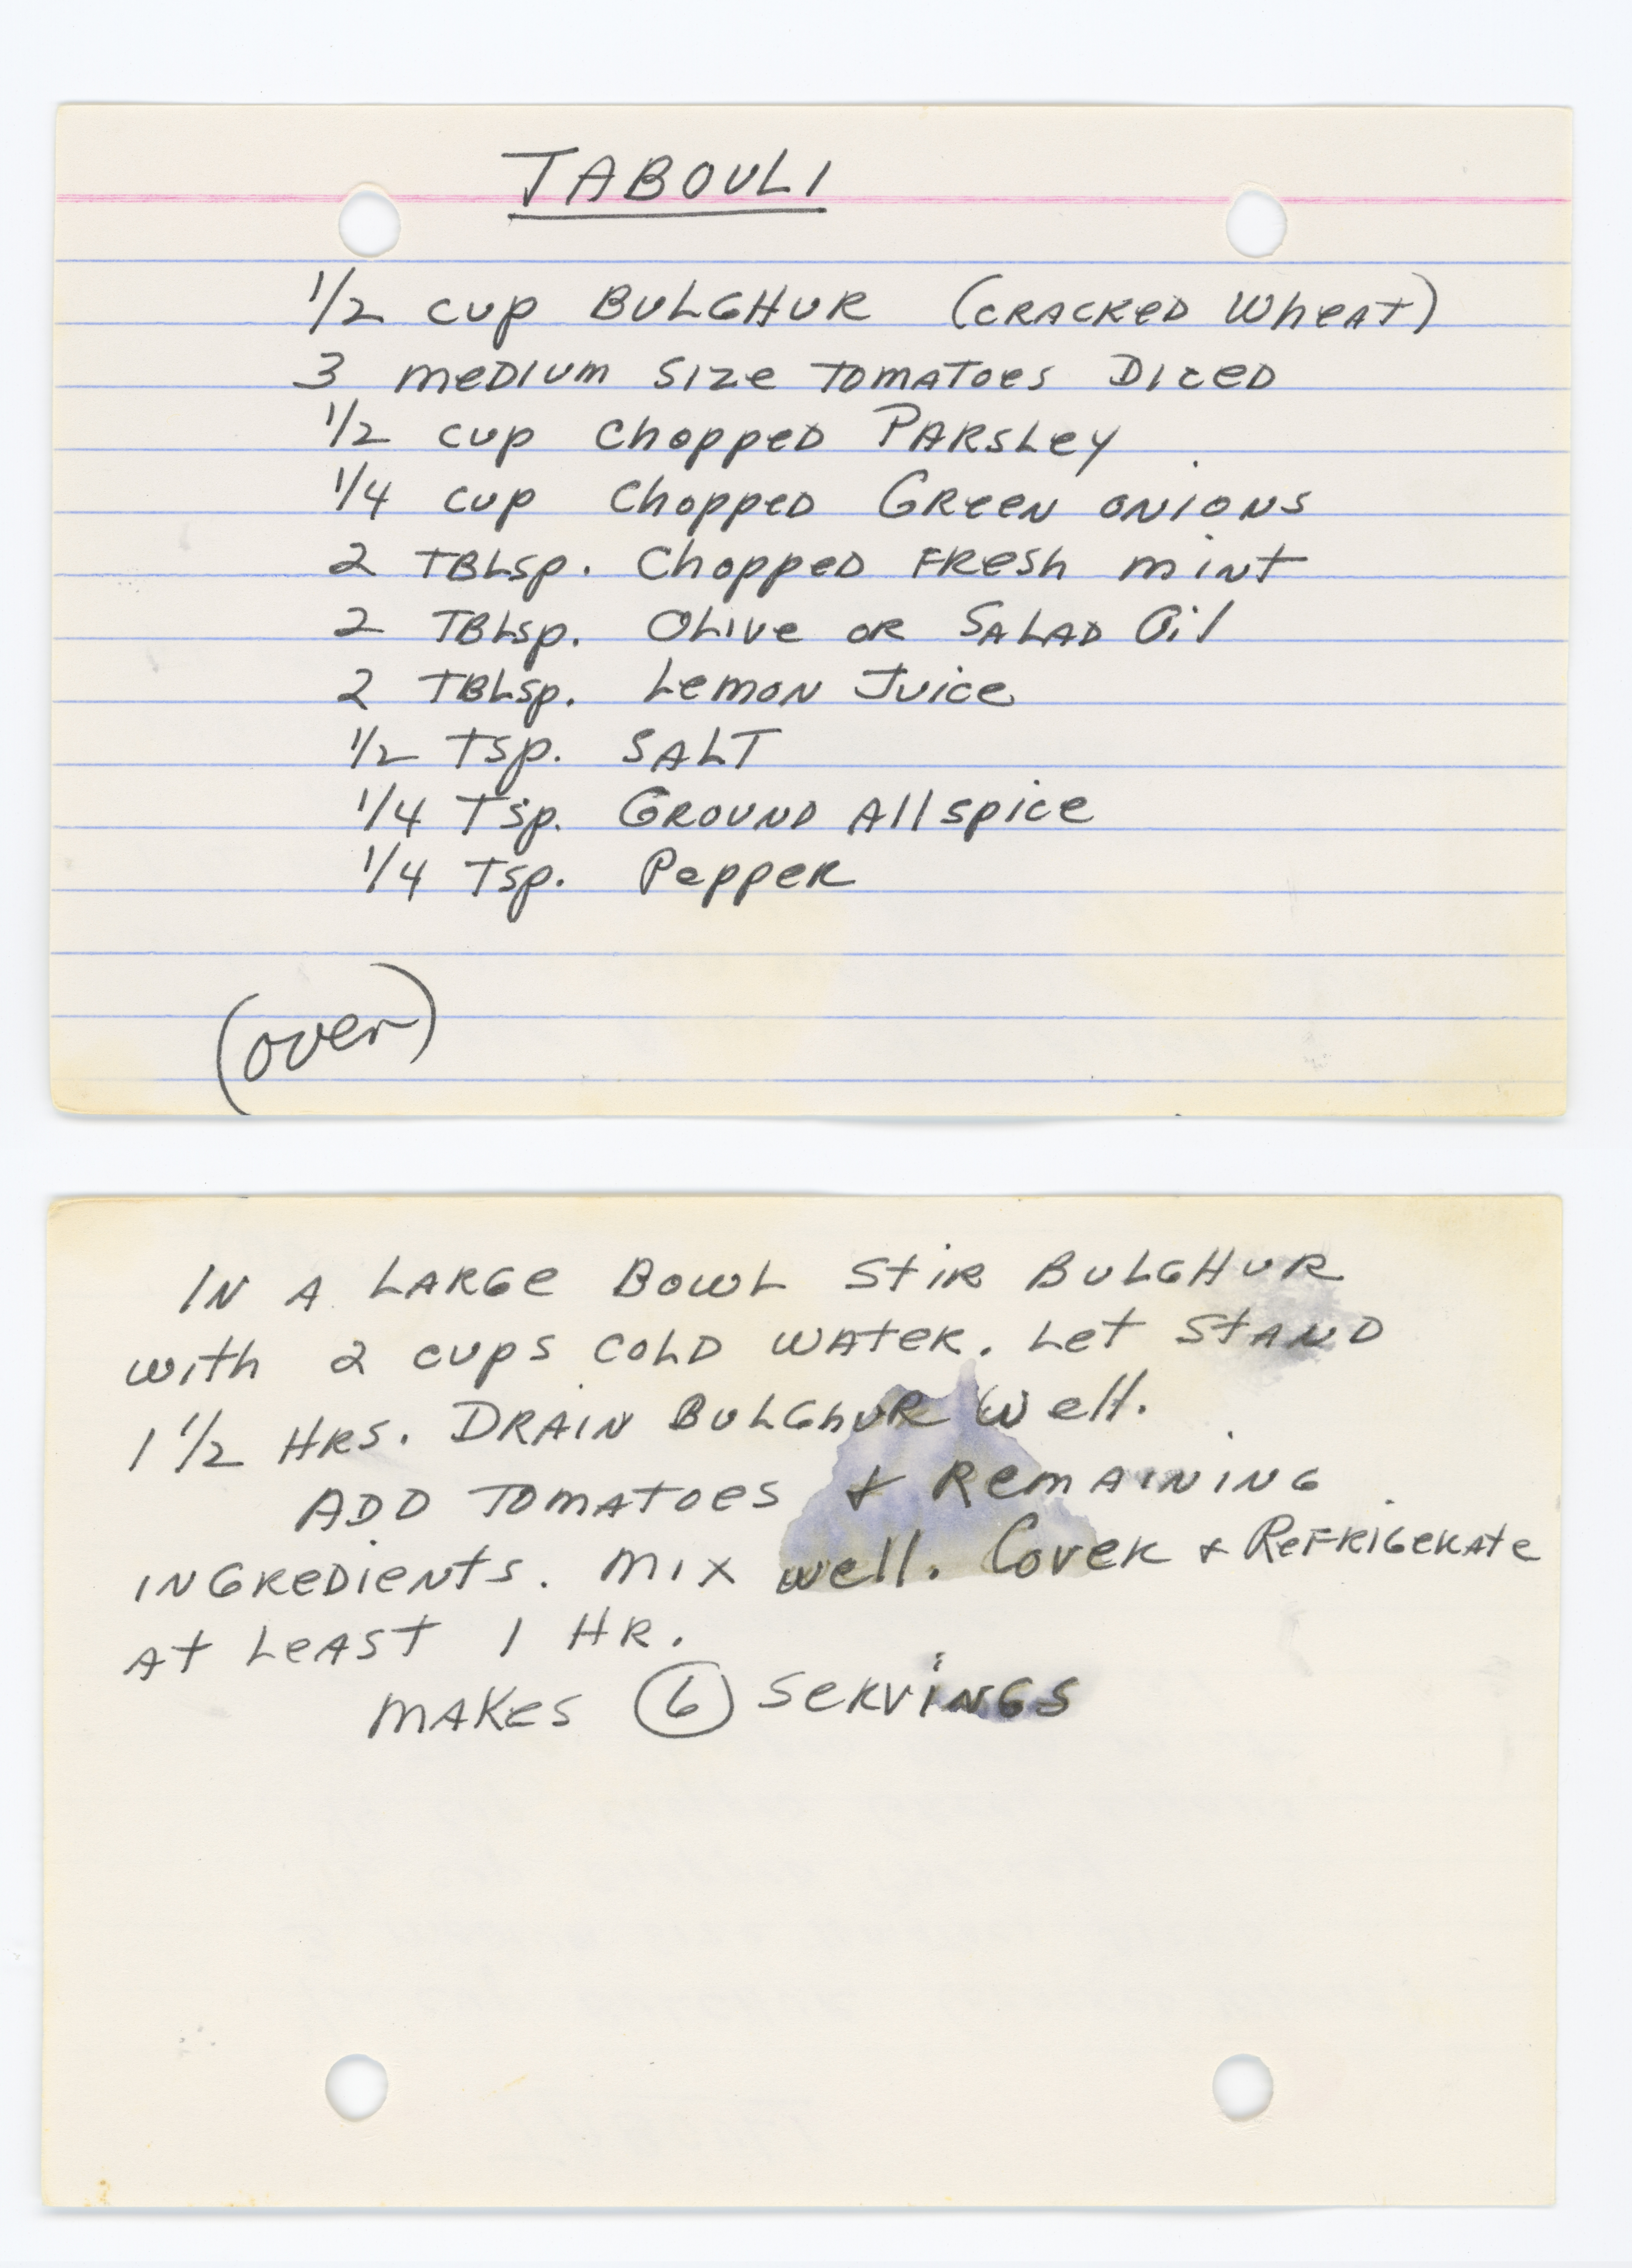 TABOULI
1/2 cup BULGHUR (CRACKED WHEAT)
3 MEDIUM SIZE TOMATOES DICED
1/2 cup Chopped PARSLEY
1/4 cup Chopped GREEN ONIONS
2 TBLSP. Chopped FRESH MINT
2 TBLSP. OLIVE OR SALAD Oil
2 TBLSP. Lemon Juice
1/2 Tsp. SALT
1/4 Tsp. GROUND Allspice
1/4 Tsp. Pepper
(over)
IN A LARGE BOWL STIR BULGHUR
with 2 cups COLD WATER. Let STAND
1 1/2 HRS. DRAIN BULGhUR Well.
ADD TOMATOES & REMAINING
INGREDIENTS. MIX well. Cover & REFRIGERATE
AT LEAST 1 HR.
MAKES 6 SERVINGS